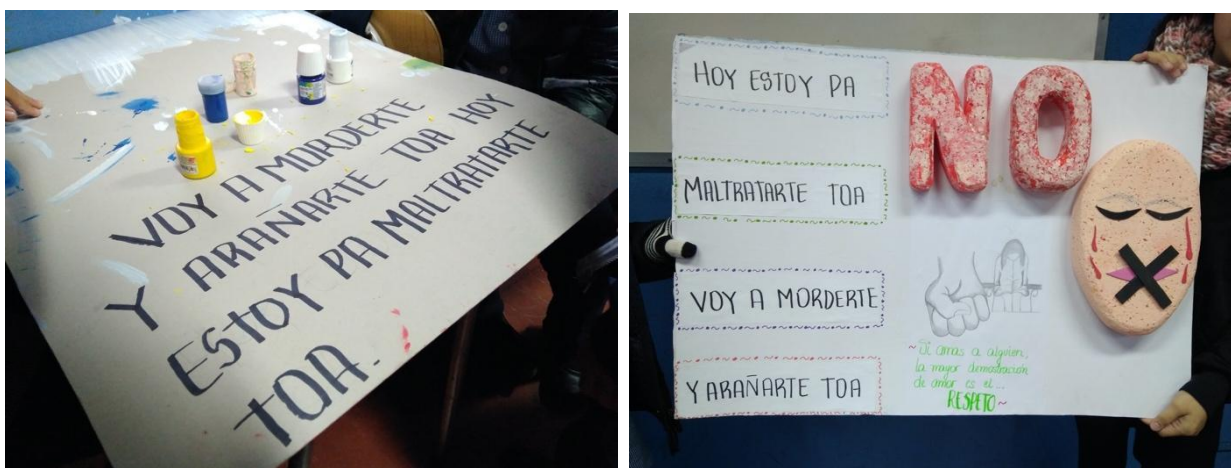 VOY A MORDERTE
Y ARAÑARTE TOA HOY
ESTOY PA MALTRATARTE
TOA.
HOY ESTOY PA
MALTRATARTE TOA
VOY A MORDERTE
Y ARAÑARTE TOA
NO
~Si amas a alguien,
la mayor demostración
de amor es el...
RESPETO~